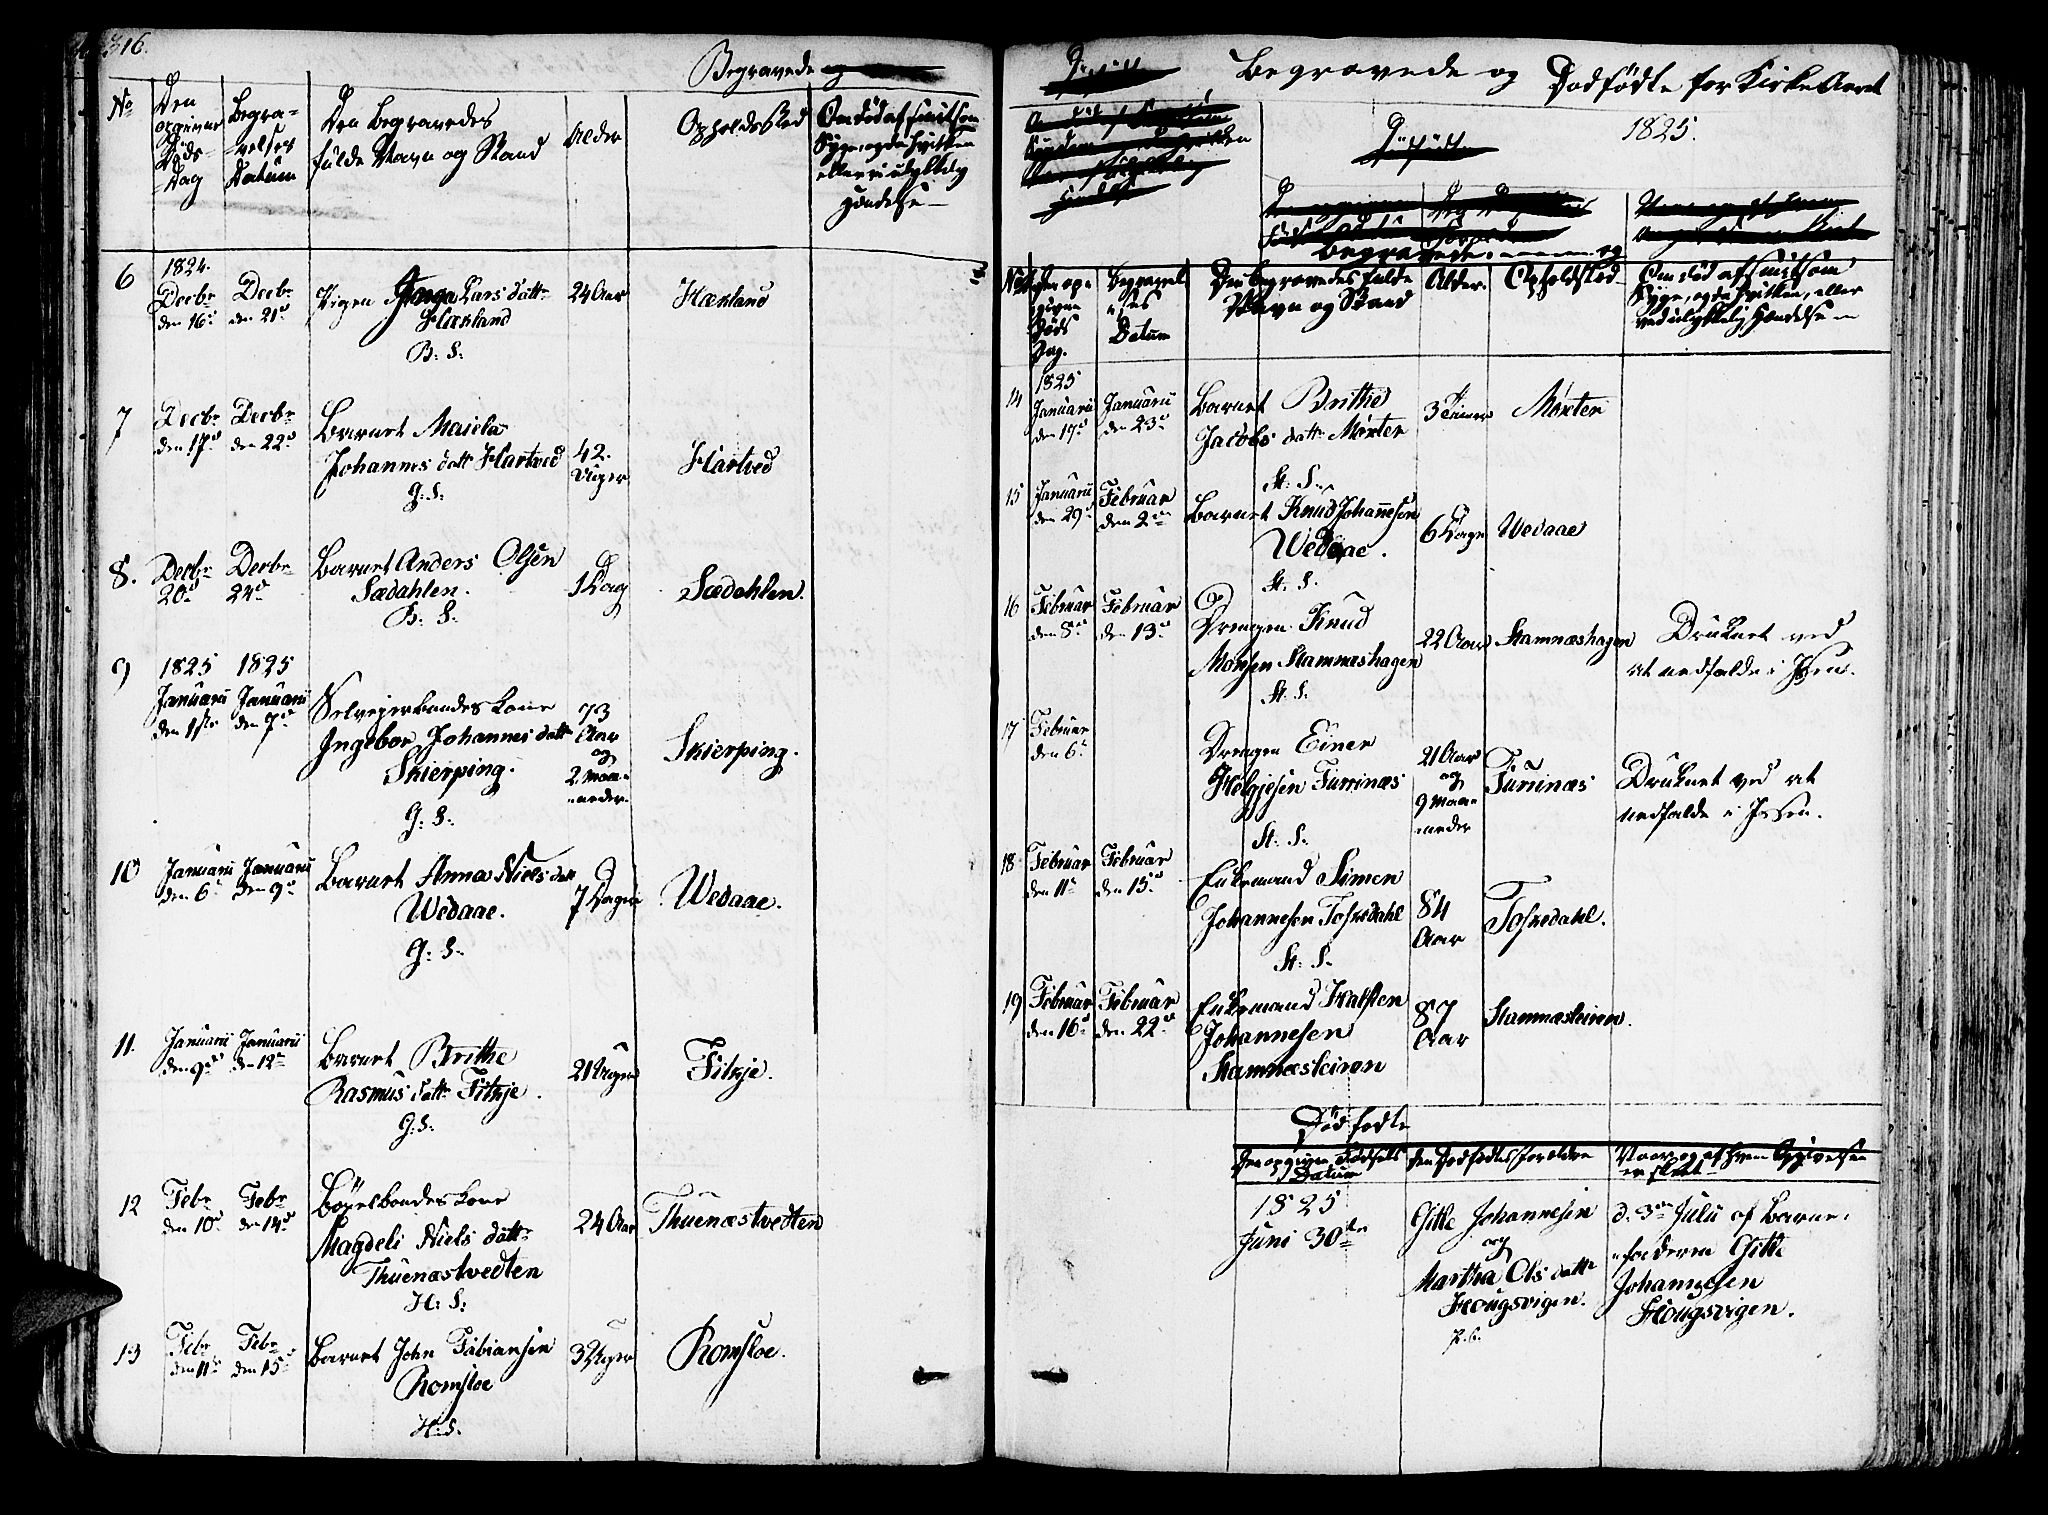 316.
Begravede
No
Den opgivne Døds-Dag
Begravelses Datum
Den Begravedes fulde Navn og Stand
Alder
Opholdssted
Om død af smitsom Syge, og da hvilken eller ved ulykkelig Hændelse
6
1824.
Decbr den 16d
Decbr den 21d
Pigen Inga Lars datter
Hækland
B: S:
24 Aar
Hækland
7
Decbr den 17d
Decbr den 22d
Barnet Maiela
Johannes datt Hartved
G: S:
42. Uger
Hartved
8.
Decbr 20d
Decbr 24d
Barnet Anders Olsen
Sædahlen.
B: S:
1 Dag
Sædahlen.
9
1825 Januarii den 1ste
1825 Januarii den 7d
Selveierbondes Kone
Ingebor Johannes datt
Skierping.
G: S:
73 Aar og 2 Maaneder
Skierping.
10
Januarii den 6d
Januarii den 9d
Barnet Anna Niels datt
Wedaae.
G: S.
7 Dage
Wedaae.
11.
Januarii den 9d
Januarii den 12te
Barnet Brithe
Rasmus datt Fitkje.
G: S.
21 Uger
Fitkje.
12
Febr den 10d
Febr den 14d
Bøxelbondes Kone
Magdeli Niels datter
Thuenæstvedten
H: S:
24 Aar
Thuenæstvedten
13
Febr den 11te
Febr den 15d
Barnet John Fabiansen
Romsloe
H: S.
3 Uger
Romsloe.
Begravede og Dødfødte for Kirke Aaret
1825.
Begravede
No
Den opgivne Døds Dag.
Begravelses Datum
Den Begravedes fulde Navn og Stand
Alder
Opholdsted
Om død af smitsom Syge, og da hvilken, eller ved ulykkelig Hændelse
14
1825 Januarii den 19d
Januarii den 23d
Barnet Brithe
Jacobs datt Møxter
St. S.
3 Timer
Møxter
15
Januarii den 29d
Februar den 2den
Barnet Knud Johannesen
Wedaae.
St. S.
6 Dage
Wedaae
16
Februar den 8d
Februar den 13d
Drengen Knud
Monsen Stamnæshagen
St. S.
22 Aar
Stamnæshagen
Druknet ved
at nedfalde i Isen.
17
Februar den 6te
Drengen Einer
Helgjesen Furrinæs
St. S.
21 Aar og 9 Maaneder
Furrinæs
Druknet ved at
nedfalde i Issen.
18
Februar den 11te
Februar den 15d
Enkemand Simen
Johannesen Toskedahl
St. S.
84 Aar
Toskedahl.
19
Februar den 16d
Februar den 22d
Enkemand Halsten
Johannesen
Stamnæsleiren
87 Aar
Stamnæsleiren.
Dødfødte
Den opgivne Fødsels Datum
Den Dødfødtes Foreldre
Naar og af hvem Opgivelsen er skeet
1825
Juni 30te
Gitle Johannesen
og
Martha Ols datter
Hougsvigen.
d. 3die Julii af Barne-
faderen Gitle
Johannesen
Hougsvigen.